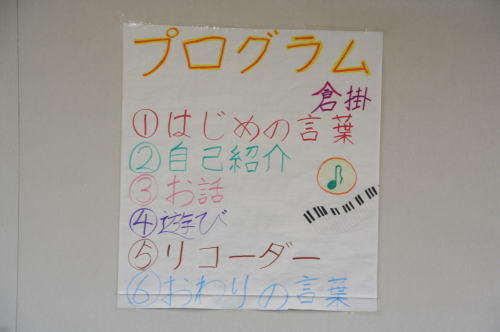 プログラム
倉掛
①はじめの言葉
②自己紹介
③お話
④遊び
⑤リコーダー
⑥おわりの言葉